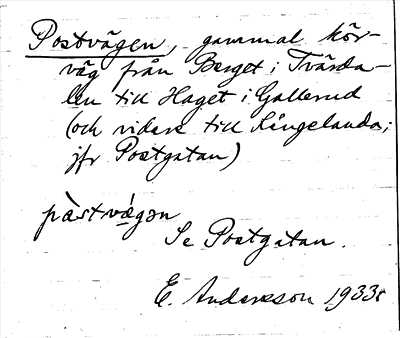 Postvägen, gammal kör-
väg från Berget i Tvärda-
len till Haget i Gallerud
(och vidare till Långelanda;
jfr Postgatan)
pàstvǽgən
Se Postgatan.
E. Andersson 1933